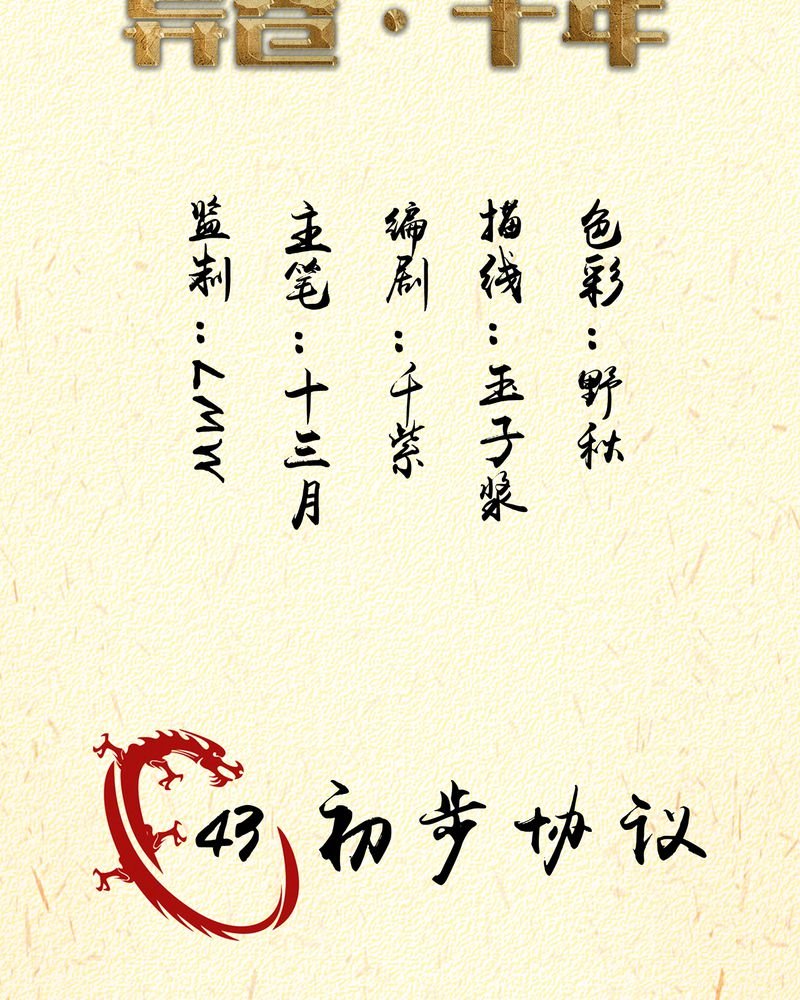 千年
监制：
主笔：十三月
编剧：千紫
描线：玉子浆
色彩：野秋
43 初步协议